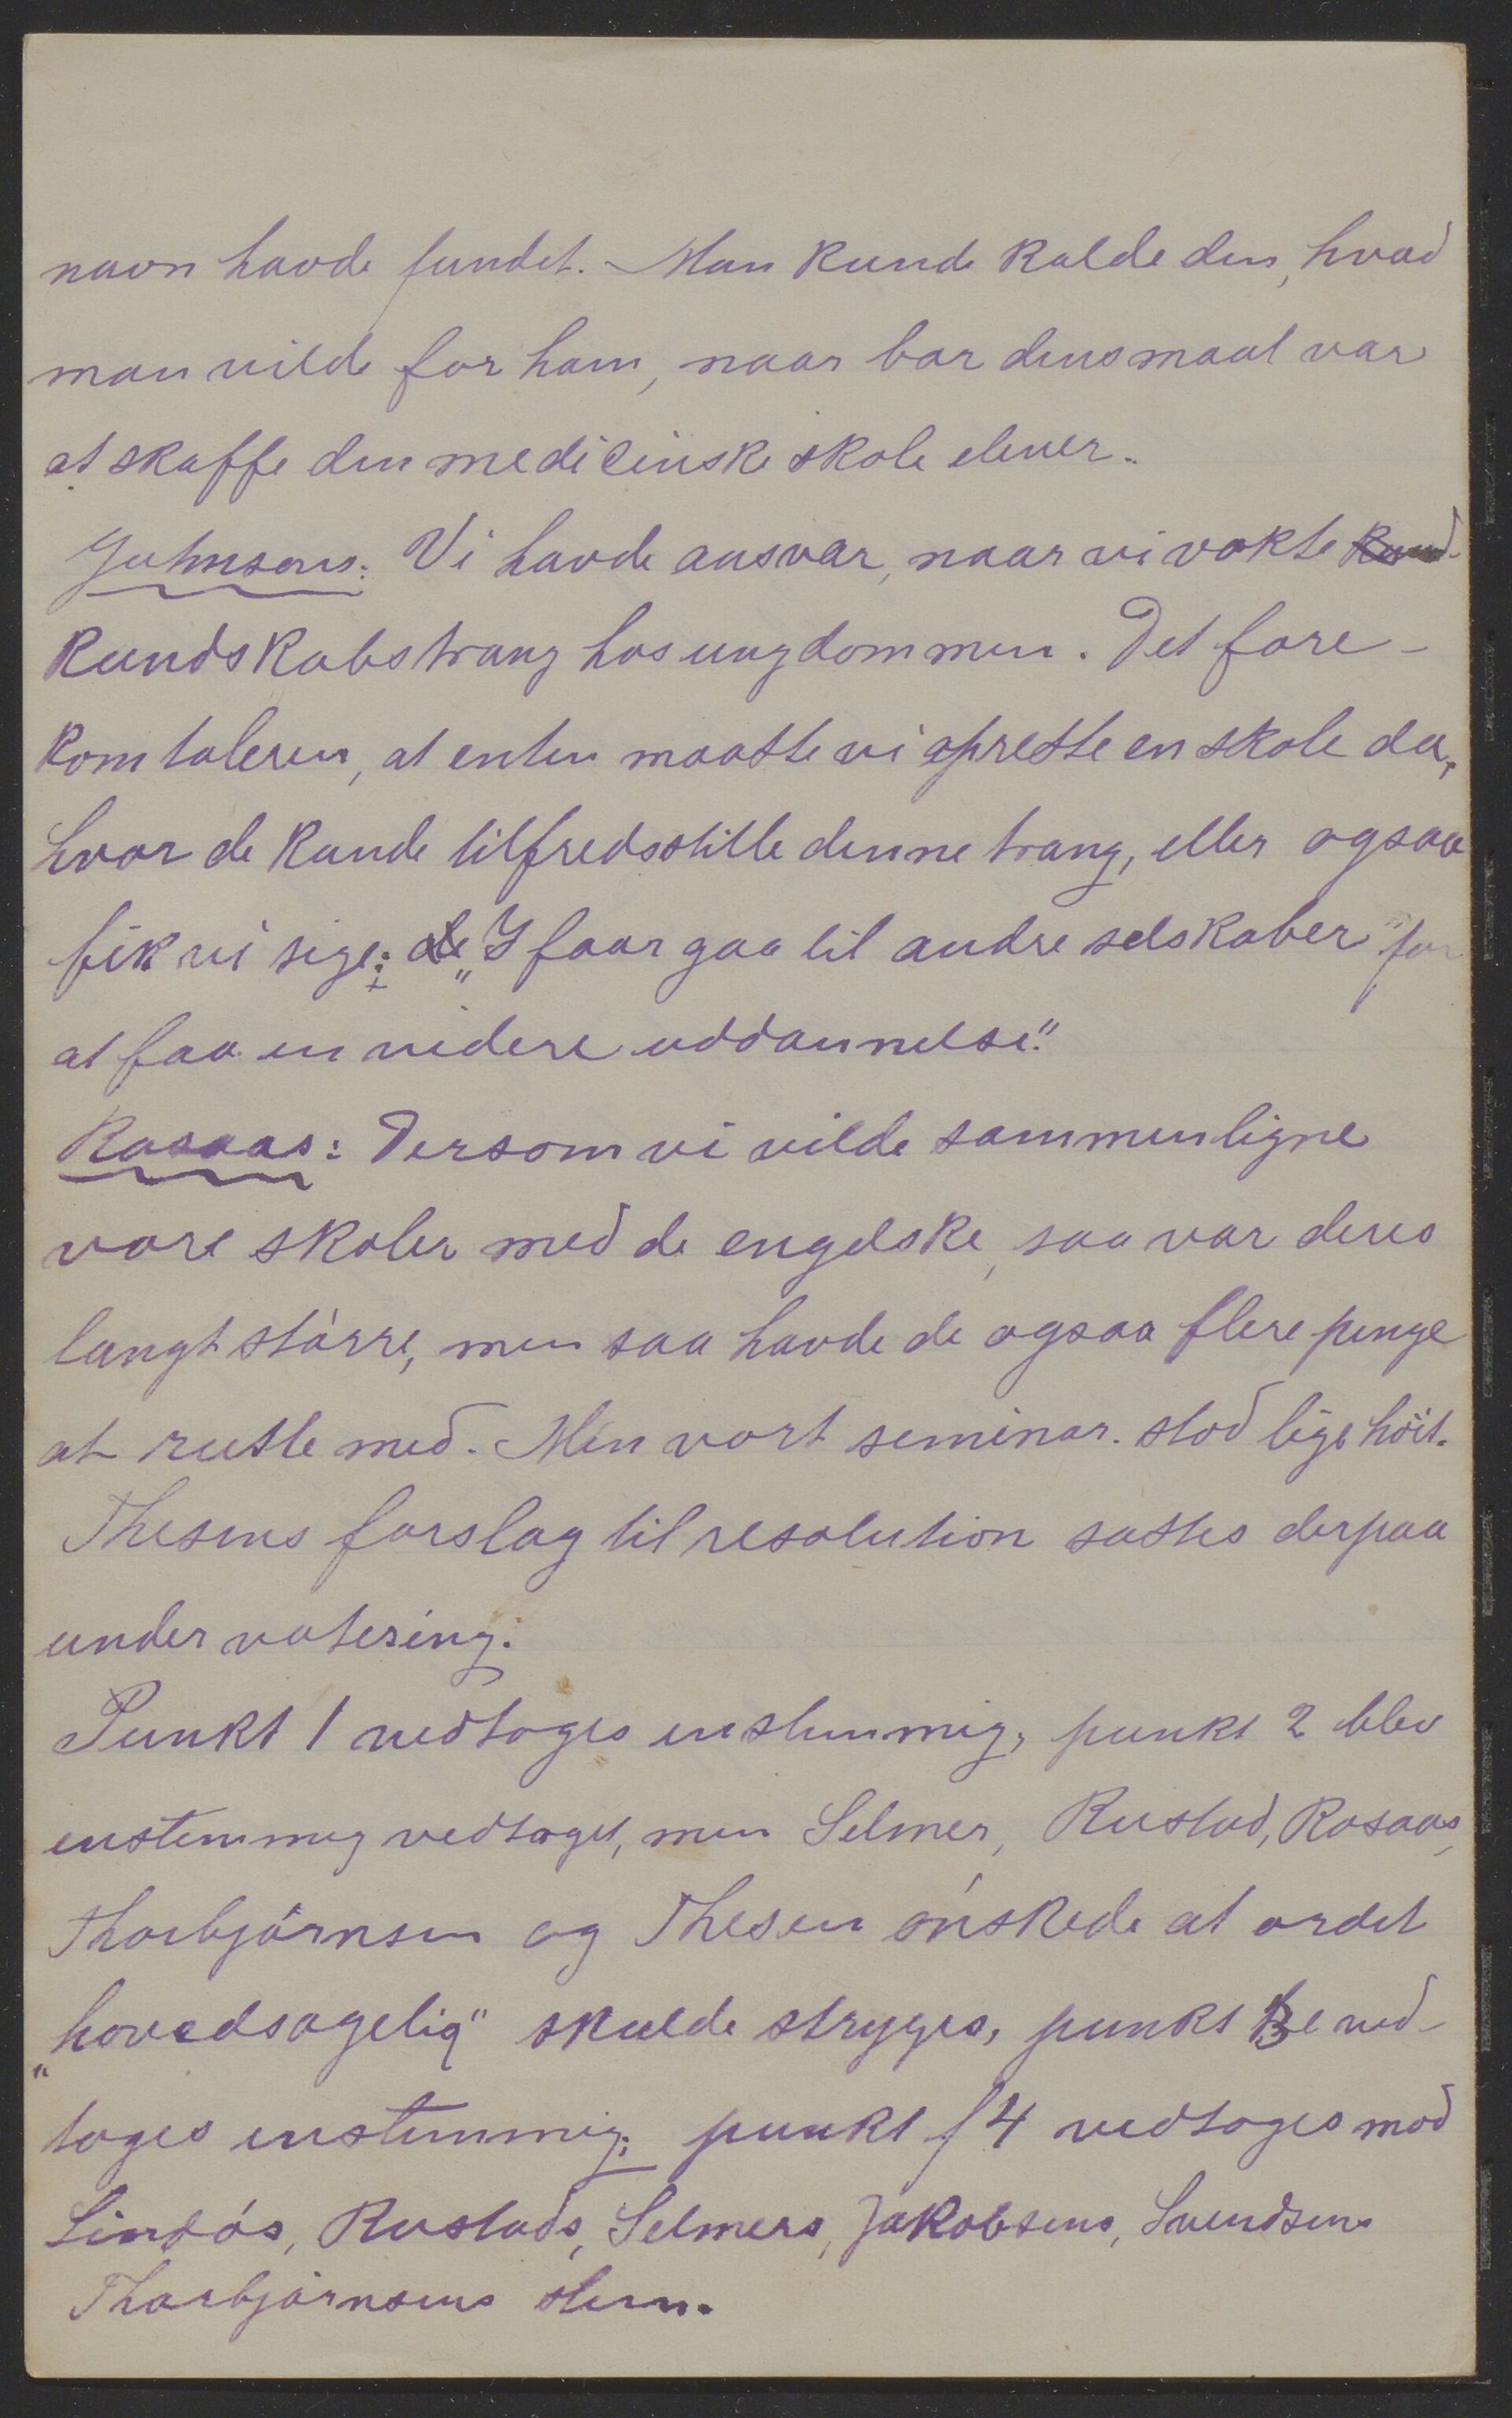 navn havde fundet. Man kunde kalde den, hvad
man vilde for ham, naar bar dens maal var
at skaffe den medicinske skole elever.
Johnson: Vi havde ansvar, naar vi vakte kund-
kundskabstrang hos ungdommen. Det fore-
kom taleren, at enten maatte vi oprette en skole der,
hvor de kunde tilfredsstille denne trang, eller ogsaa
fik vi sige: „I faar gaa til andre selskaber" for
at faa en videre uddannelse."
Rosaas: Dersom vi vilde sammenligne
vore skoler med de engelske, saa var deres
langt större, men saa havde de ogsaa flere penge
at rutle med. Men vort seminar. stod lige höit.
Thesens forslag til resolution sattes derpaa
under votering.
Punkt 1 vedtoges enstemmig, punkt 2 blev
enstemmig vedtaget, men Selmer, Rustad, Rosaas,
Thorbjörnsen og Thesen önskede at ordet
„hovedsagelig" skulde stryges, punkt 3 ved-
toges enstemmig; punkt 4 vedtoges mod
Lindös, Rustads, Selmers, Jakobsens, Svendsens
Thorbjörnsens stem.